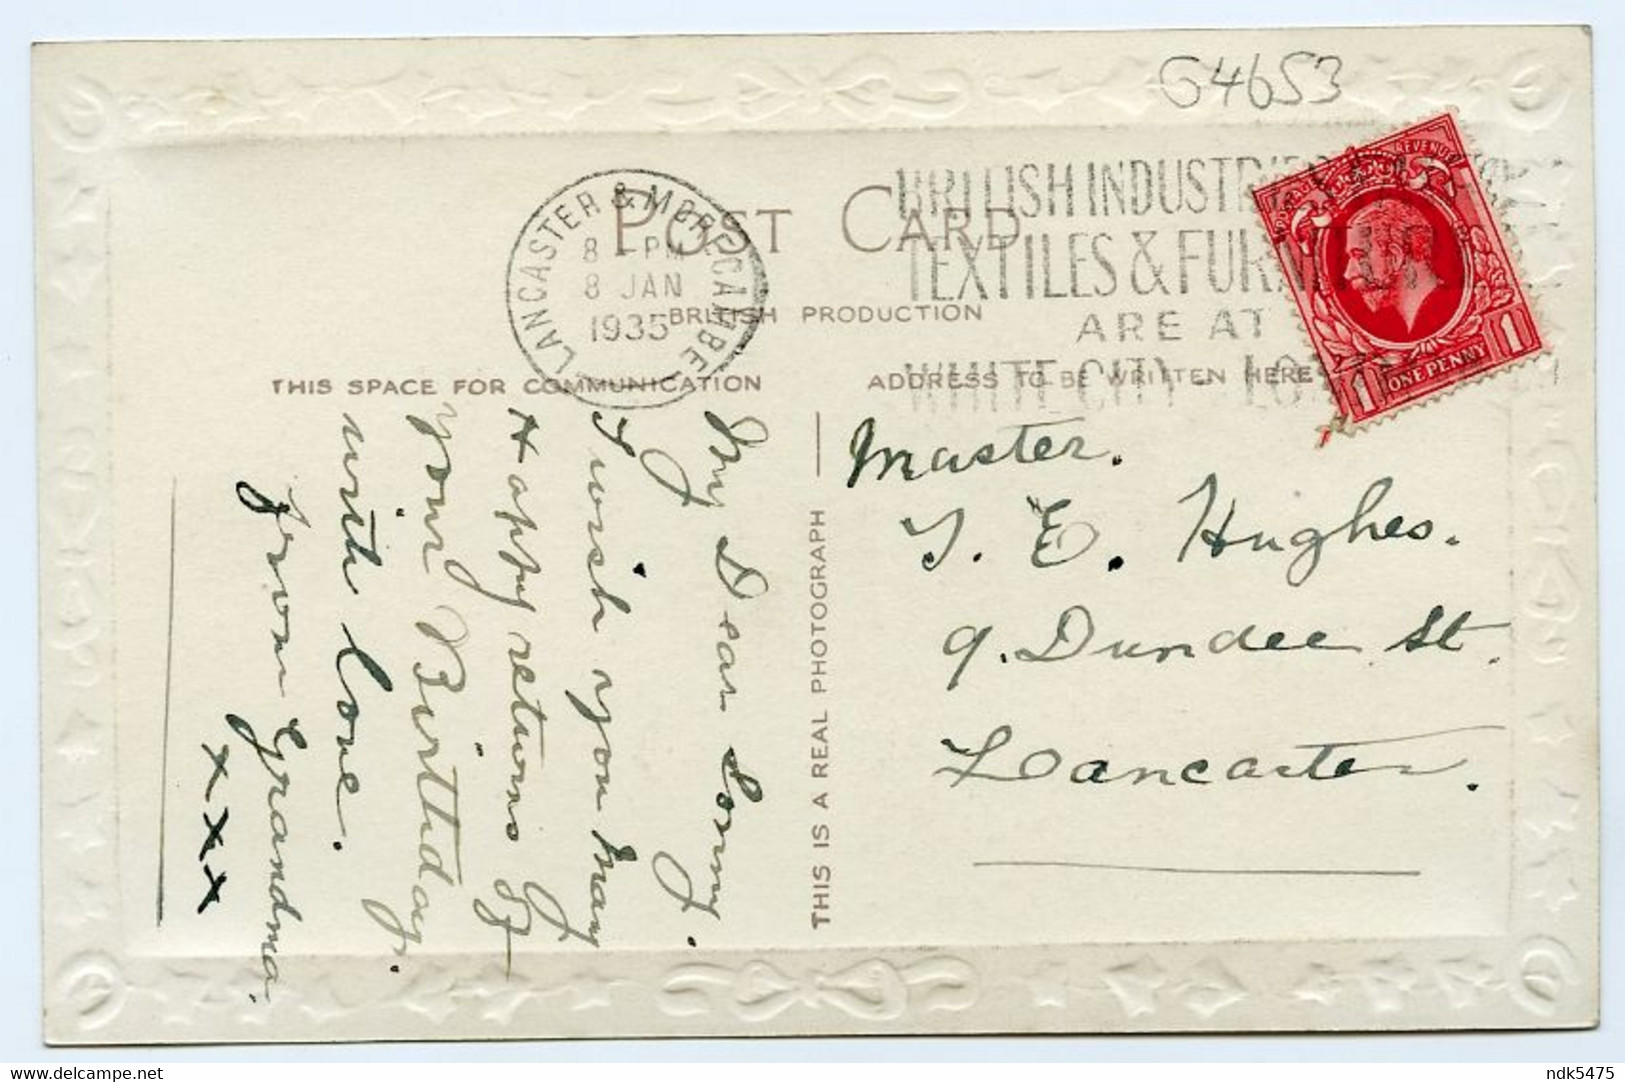 G4653
LANCASTER & MORECAMBE
8 - PM
8 JAN
1935
BRITISH INDUSTRIES
TEXTILES & FURNITURE
ARE AT
WHITE CITY - LO
POST CARD
BRITISH PRODUCTION
THIS SPACE FOR COMMUNICATION
ADDRESS TO BE WRITTEN HERE
REVENUE
1 ONE PENNY 1
My Dear Sonny.
I wish you Many
Happy returns of
your Birthday.
with love.
from Grandma.
x x x
THIS IS A REAL PHOTOGRAPH
Master.
T. E. Hughes.
9. Dundee St.
Lancaster.
delcampe.net
ndk5475